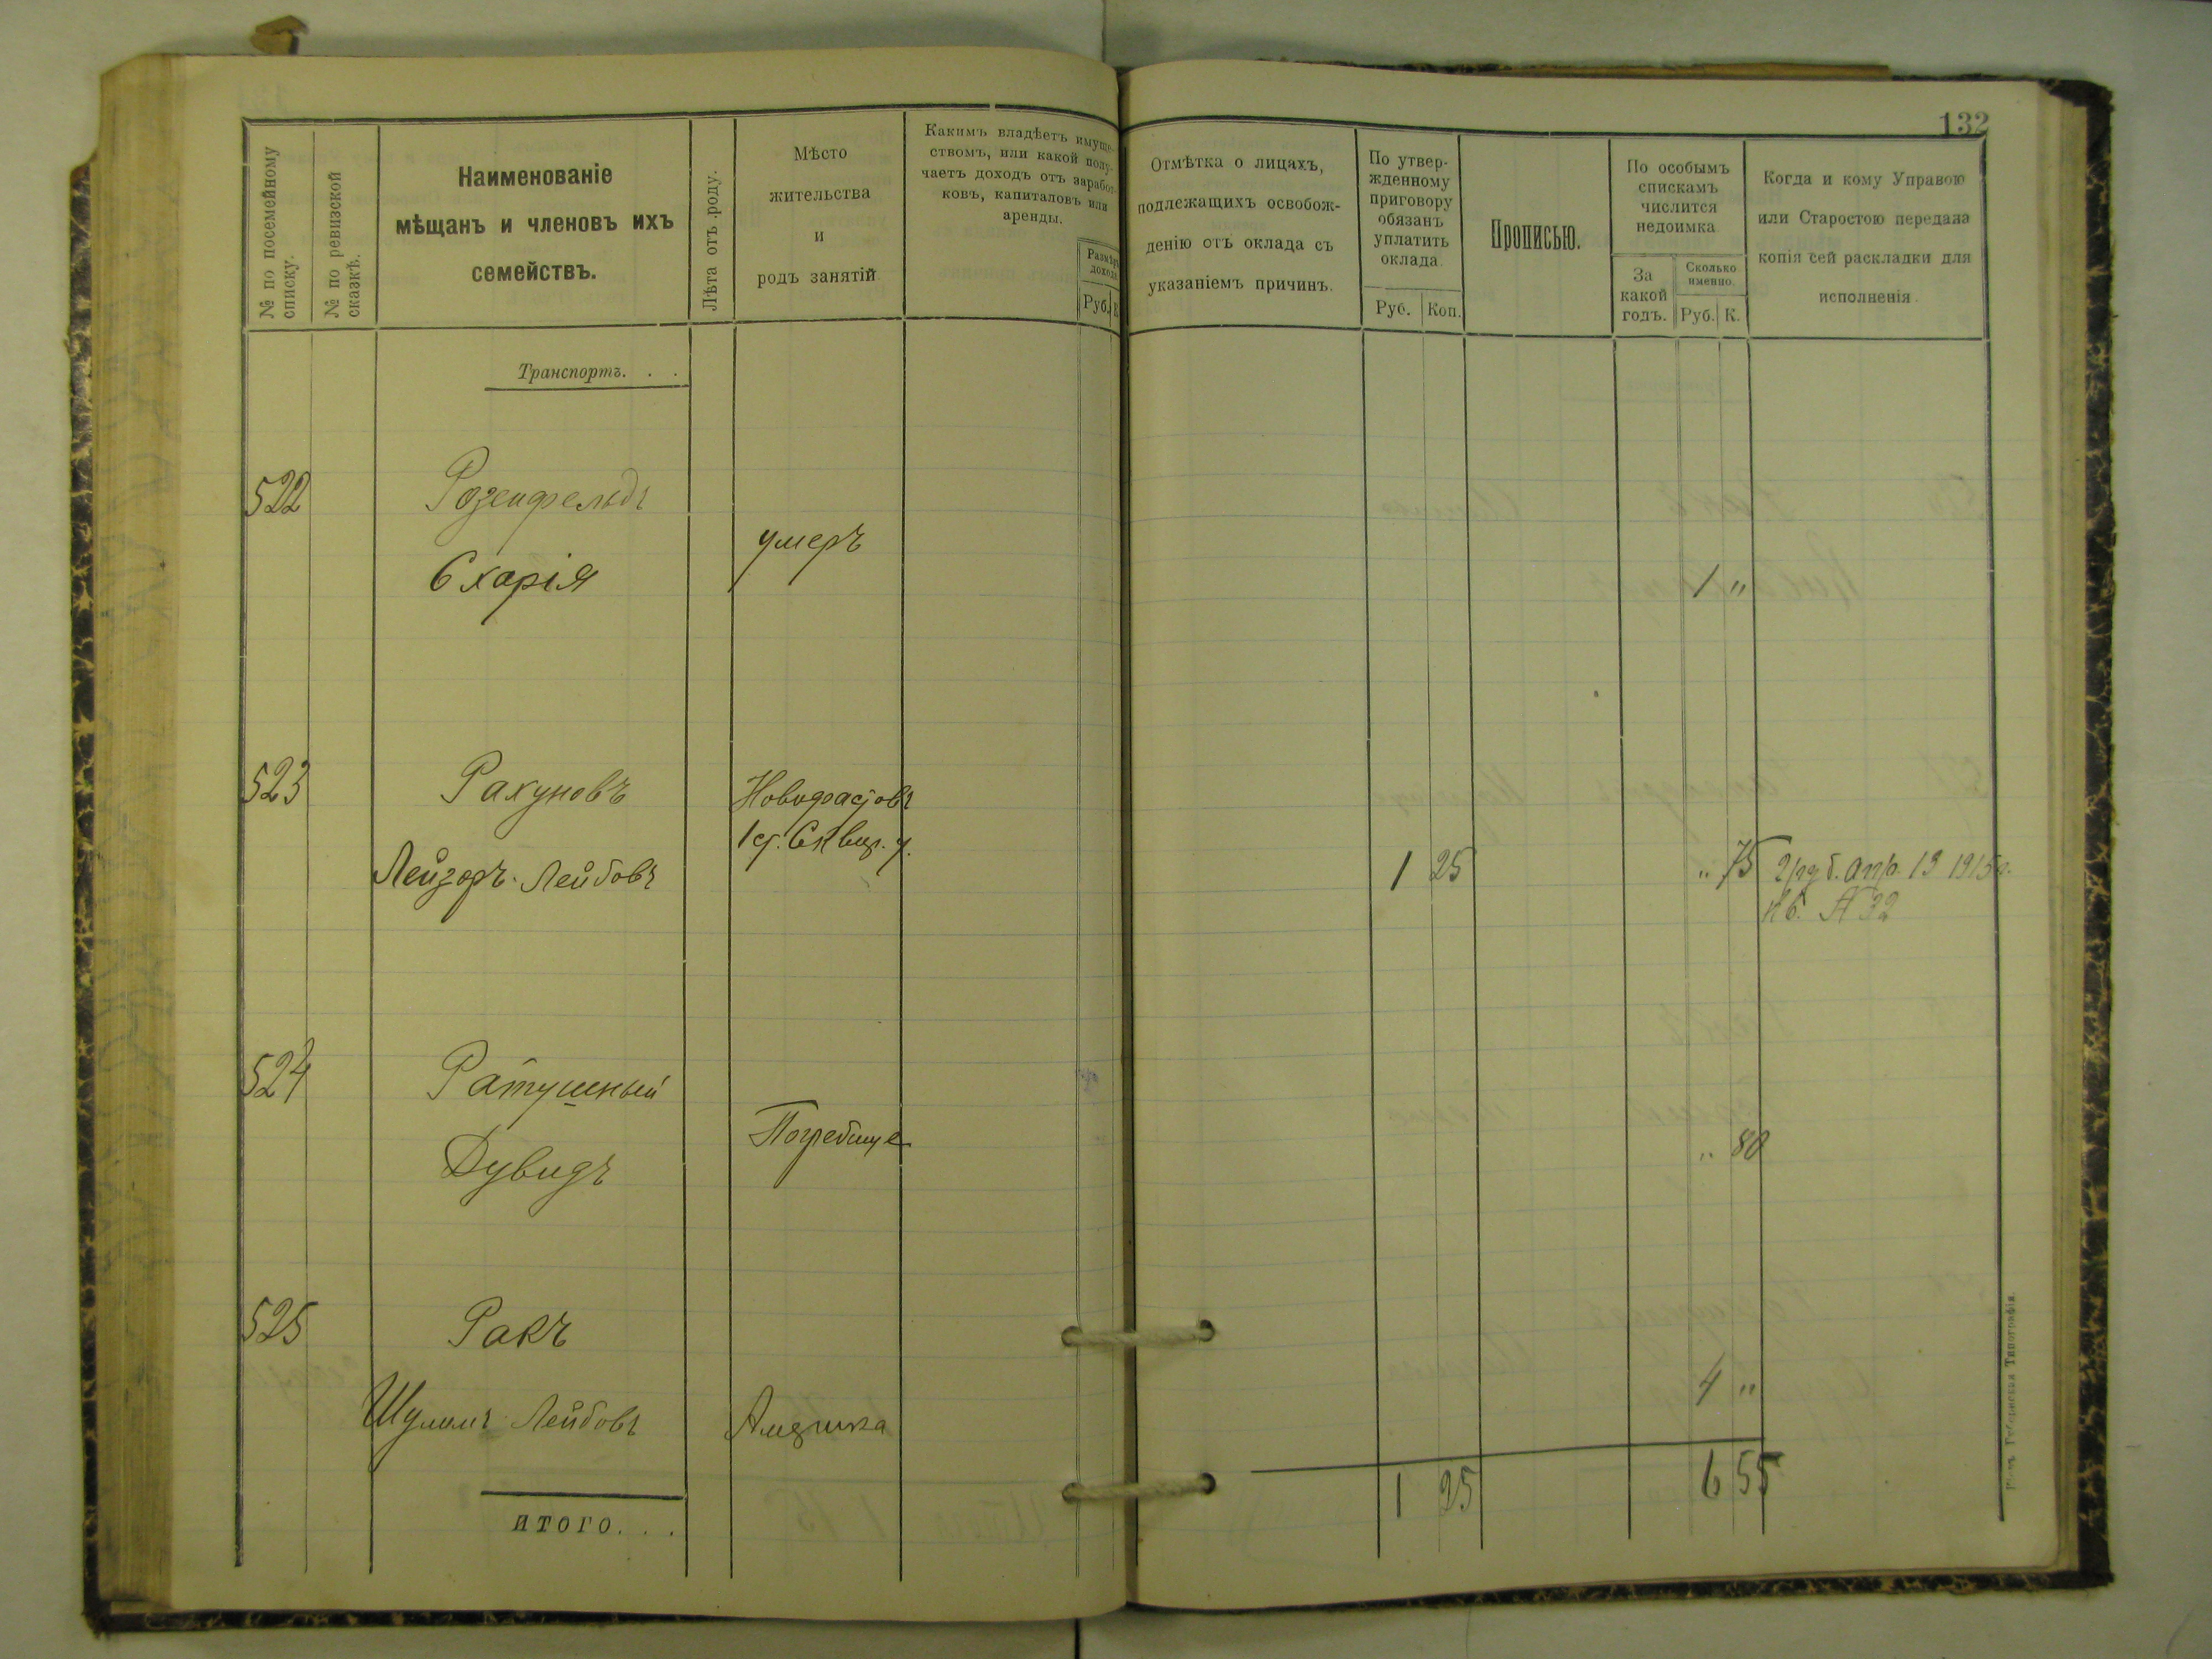 132
№ по посемейному списку.
№ по ревизской сказкѣ.
Наименованіе
мѣщанъ и членовъ ихъ
семействъ.
Лѣта отъ роду.
Мѣсто
жительства
и
родъ занятій
Какимъ владѣетъ имуще-
ствомъ, или какой полу-
чаетъ доходъ отъ заработ-
ковъ, капиталовъ или
аренды.
Размѣръ
дохода
Руб. К.
Отмѣтка о лицахъ,
подлежащихъ освобож-
денію отъ оклада съ
указаніемъ причинъ.
По утвер-
жденному
приговору
обязанъ
уплатить
оклада
Руб. Коп.
Прописью.
По особымъ
спискамъ
числится
недоимка
За
какой
годъ.
Сколько
именно.
Руб. К.
Когда и кому Управою
или Старостою передана
копія сей раскладки для
исполненія.
Транспортъ. . .
522 Розенфельдъ
умеръ
Схарія 1 "
523 Рахуновъ Новофастовъ
1 ст. Сквир. у.
Лейзоръ Лейбовъ 1 25 " 75 2 руб. апр. 13 1915 г.
кв. № 32
524 Ратушный
Погребище
Дувидъ " 80
525 Ракъ
4 "
Шулимъ Лейбовъ
1 25 6 55
итого. . .
Губернская Типографія.